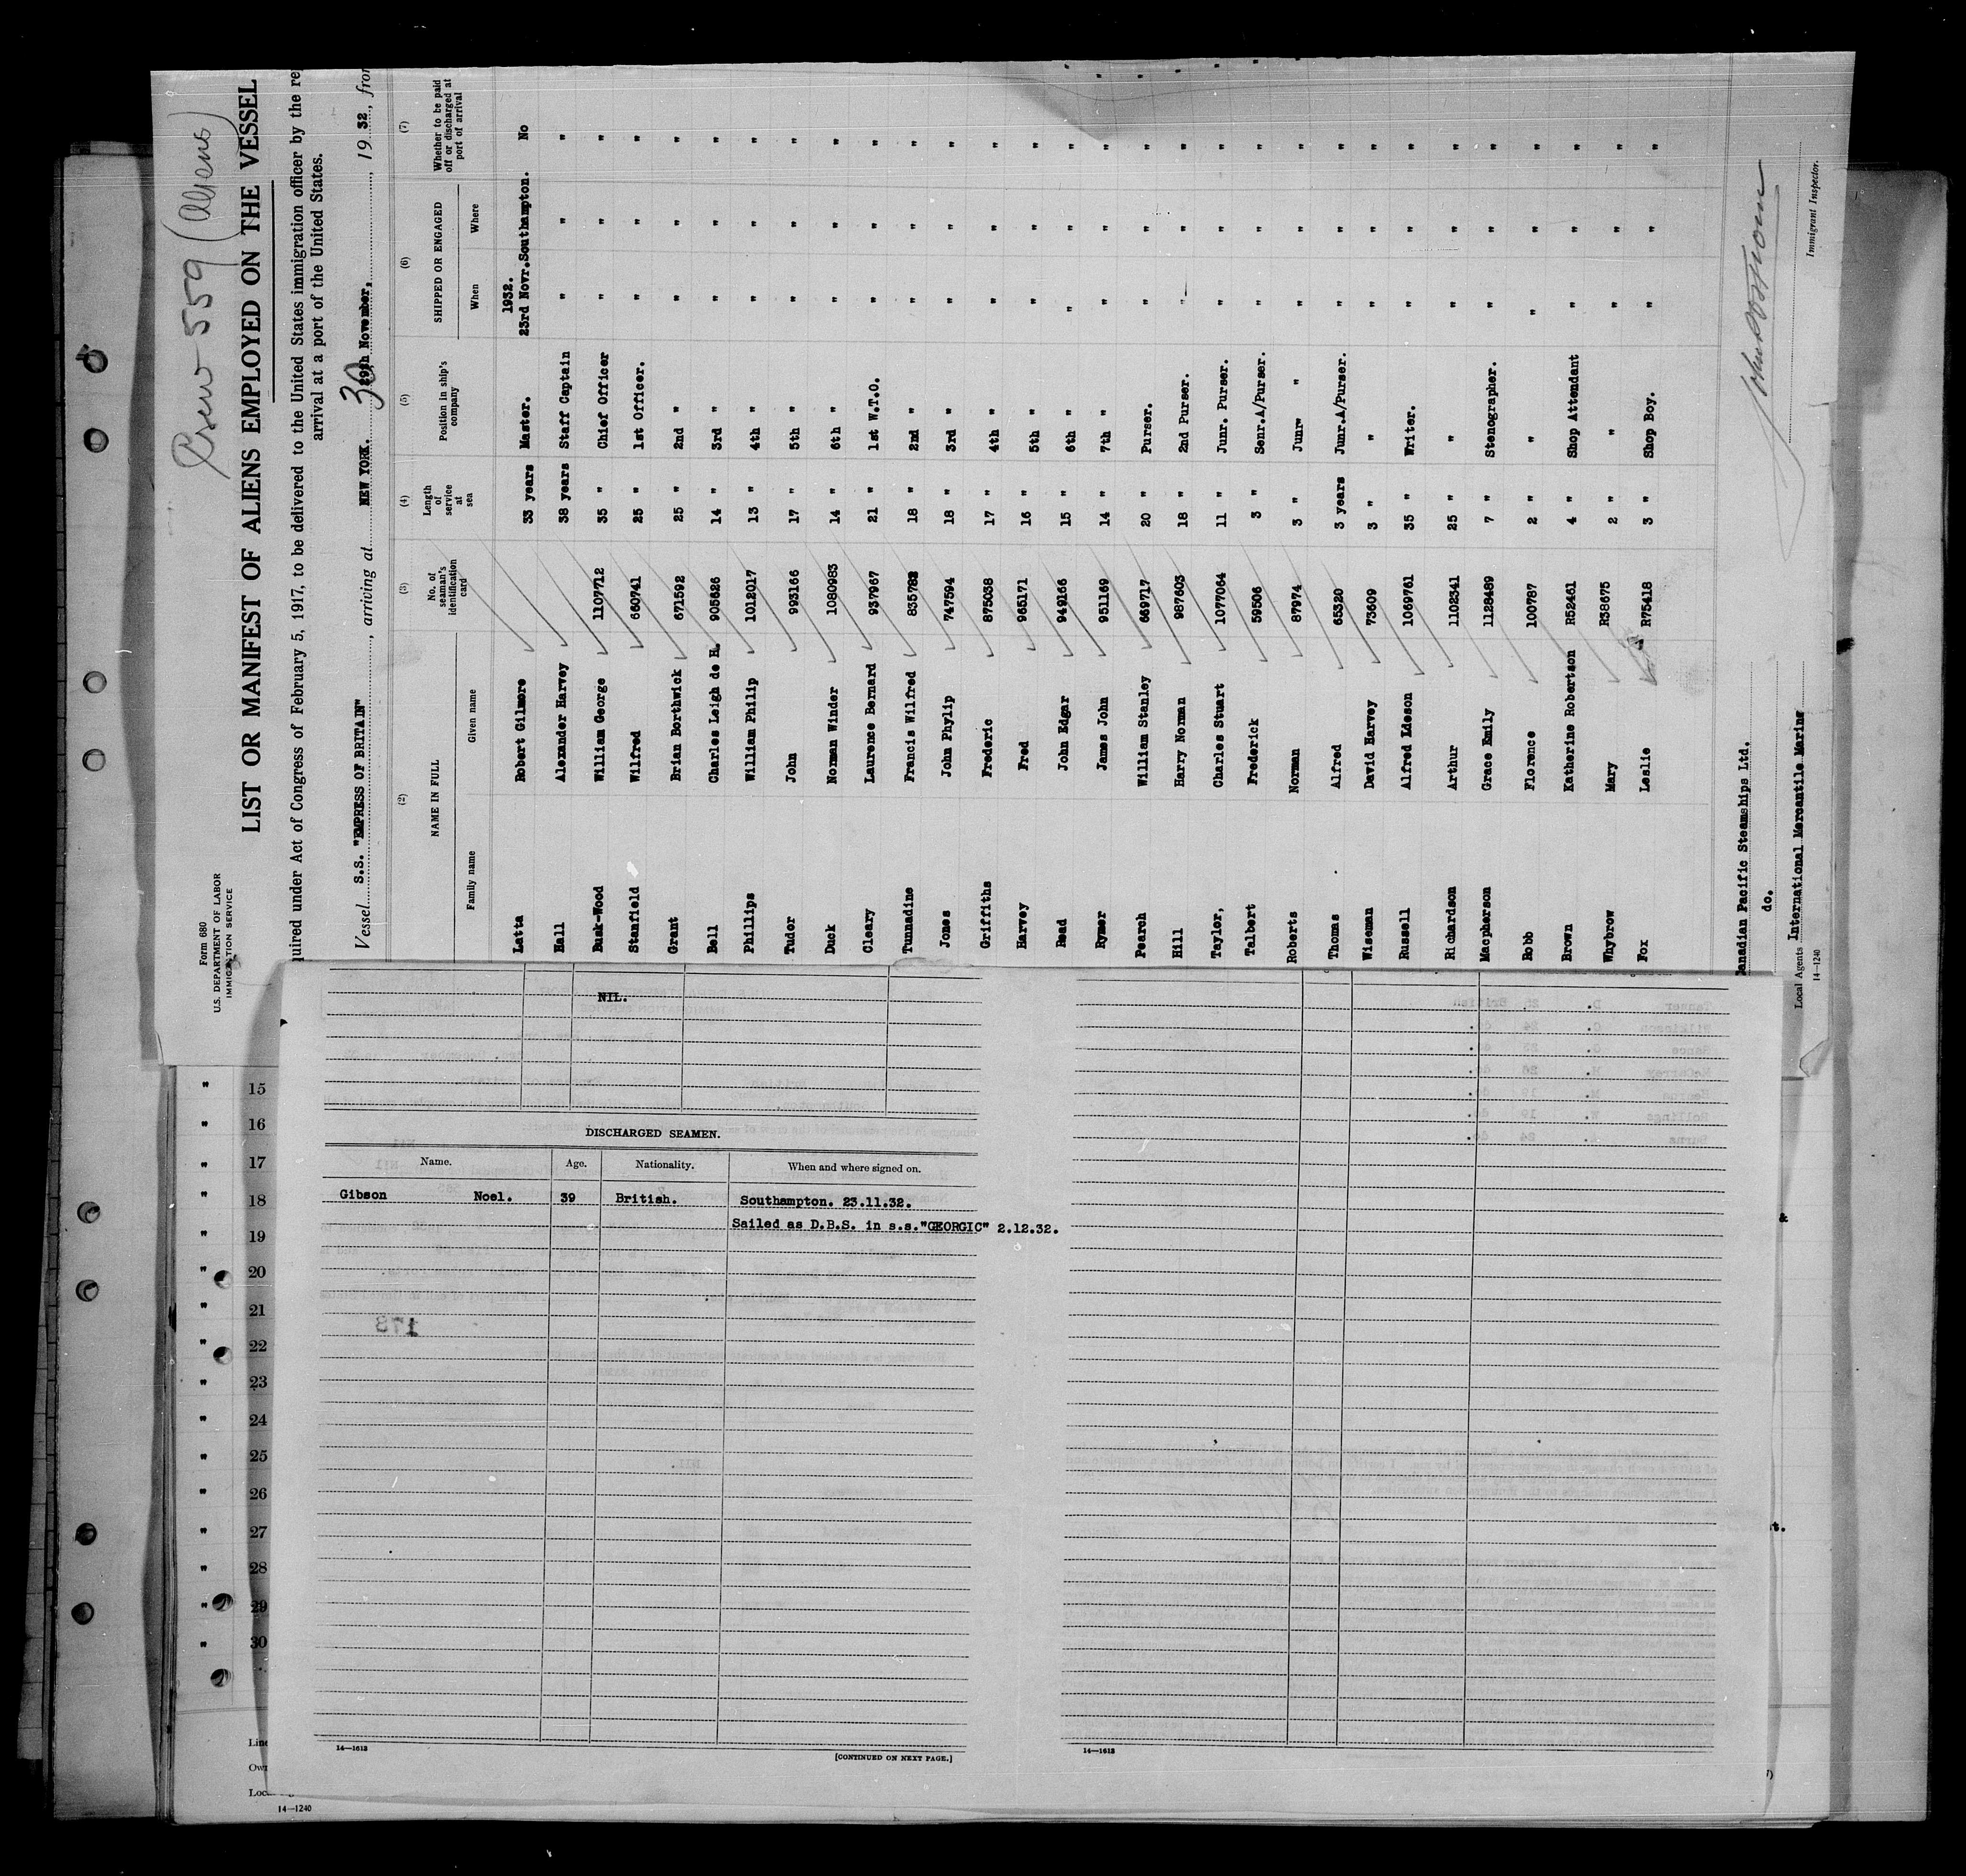 Crew 559 (Aliens)
Form 680
U.S. DEPARTMENT OF LABOR
IMMIGRATION SERVICE
LIST OR MANIFEST OF ALIENS EMPLOYED ON THE VESSEL
quired under Act of Congress of February 5, 1917, to be delivered to the United States immigration officer by the re
arrival at a port of the United States.
Vessel S.S. "EMPRESS OF BRITAIN", arriving at NEW YORK. 30 29th November, 1932, from
(2) (3) (4) (5) (6) (7)
NAME IN FULL No. of seaman's identification card Length of service at sea Position in ship's company SHIPPED OR ENGAGED Whether to be paid off or discharged at port of arrival
Family name Given name When Where
1932.
Latta Robert Gilmore 33 years Master. 23rd Novr. Southampton. No
Hall Alexander Harvey 38 years Staff Captain " " "
Busk-Wood William George 1107712 35 " Chief Officer " " "
Stanfield Wilfred 660741 25 " 1st Officer. " " "
Grant Brian Borthwick 671592 25 " 2nd " " " "
Bell Charles Leigh de H. 905626 14 " 3rd " " " "
Phillips William Philip 1012017 13 " 4th " " " "
Tudor John 993166 17 " 5th " " " "
Duck Norman Winder 1080983 14 " 6th " " " "
Cleary Laurence Bernard 937967 21 " 1st W.T.O. " " "
Tunnadine Francis Wilfred 835782 18 " 2nd " " " "
Jones John Phylip 747594 18 " 3rd " " " "
Griffiths Frederic 875038 17 " 4th " " " "
Harvey Fred 965171 16 " 5th " " " "
Read John Edgar 949166 15 " 6th " " " "
Rymer James John 951169 14 " 7th " " " "
Pearch William Stanley 669717 20 " Purser. " " "
Hill Harry Norman 987603 18 " 2nd Purser. " " "
Taylor, Charles Stuart 1077064 11 " Junr. Purser. " " "
Talbert Frederick 59506 3 " Senr.A/Purser. " " "
Roberts Norman 87974 3 " Junr" " " " "
Thomas Alfred 65320 3 years Junr.A/Purser. " " "
Wiseman David Harvey 73609 3 " " " " "
Russell Alfred Ldeson 1069761 35 " Writer. " " "
Richardson Arthur 1102341 25 " " " " "
Macpherson Grace Emily 1128489 7 " Stenographer. " " "
Robb Florence 100787 2 " " " " "
Brown Katherine Robertson R52461 4 " Shop Attendant " " "
Whybrow Mary R38675 2 " " " " "
Fox Leslie R75418 3 " Shop Boy. " " "
Canadian Pacific Steamships Ltd.
do.
Local Agents International Mercantile Marine
Immigrant Inspector.
14—1240
NIL.
DISCHARGED SEAMEN.
Name. Age. Nationality. When and where signed on.
Gibson Noel. 39 British. Southampton. 23.11.32.
Sailed as D.B.S. in s.s."GEORGIC" 2.12.32.
173
14—1613
[CONTINUED ON NEXT PAGE.]
14—1613
" 15
" 16
" 17
" 18
" 19
" 20
" 21
" 22
" 23
" 24
" 25
" 26
" 27
" 28
" 29
" 30
Line
Own
Loc
14—1240
&
t.